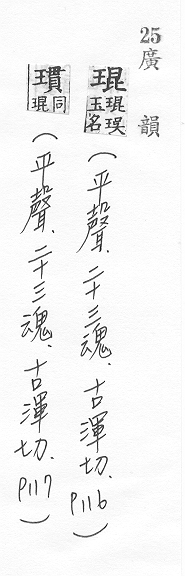 25廣韻
琨 琨珸玉名(平聲、二十三魂、古渾切、P116)
瑻 同琨(平聲、二十三魂、古渾切、P117)